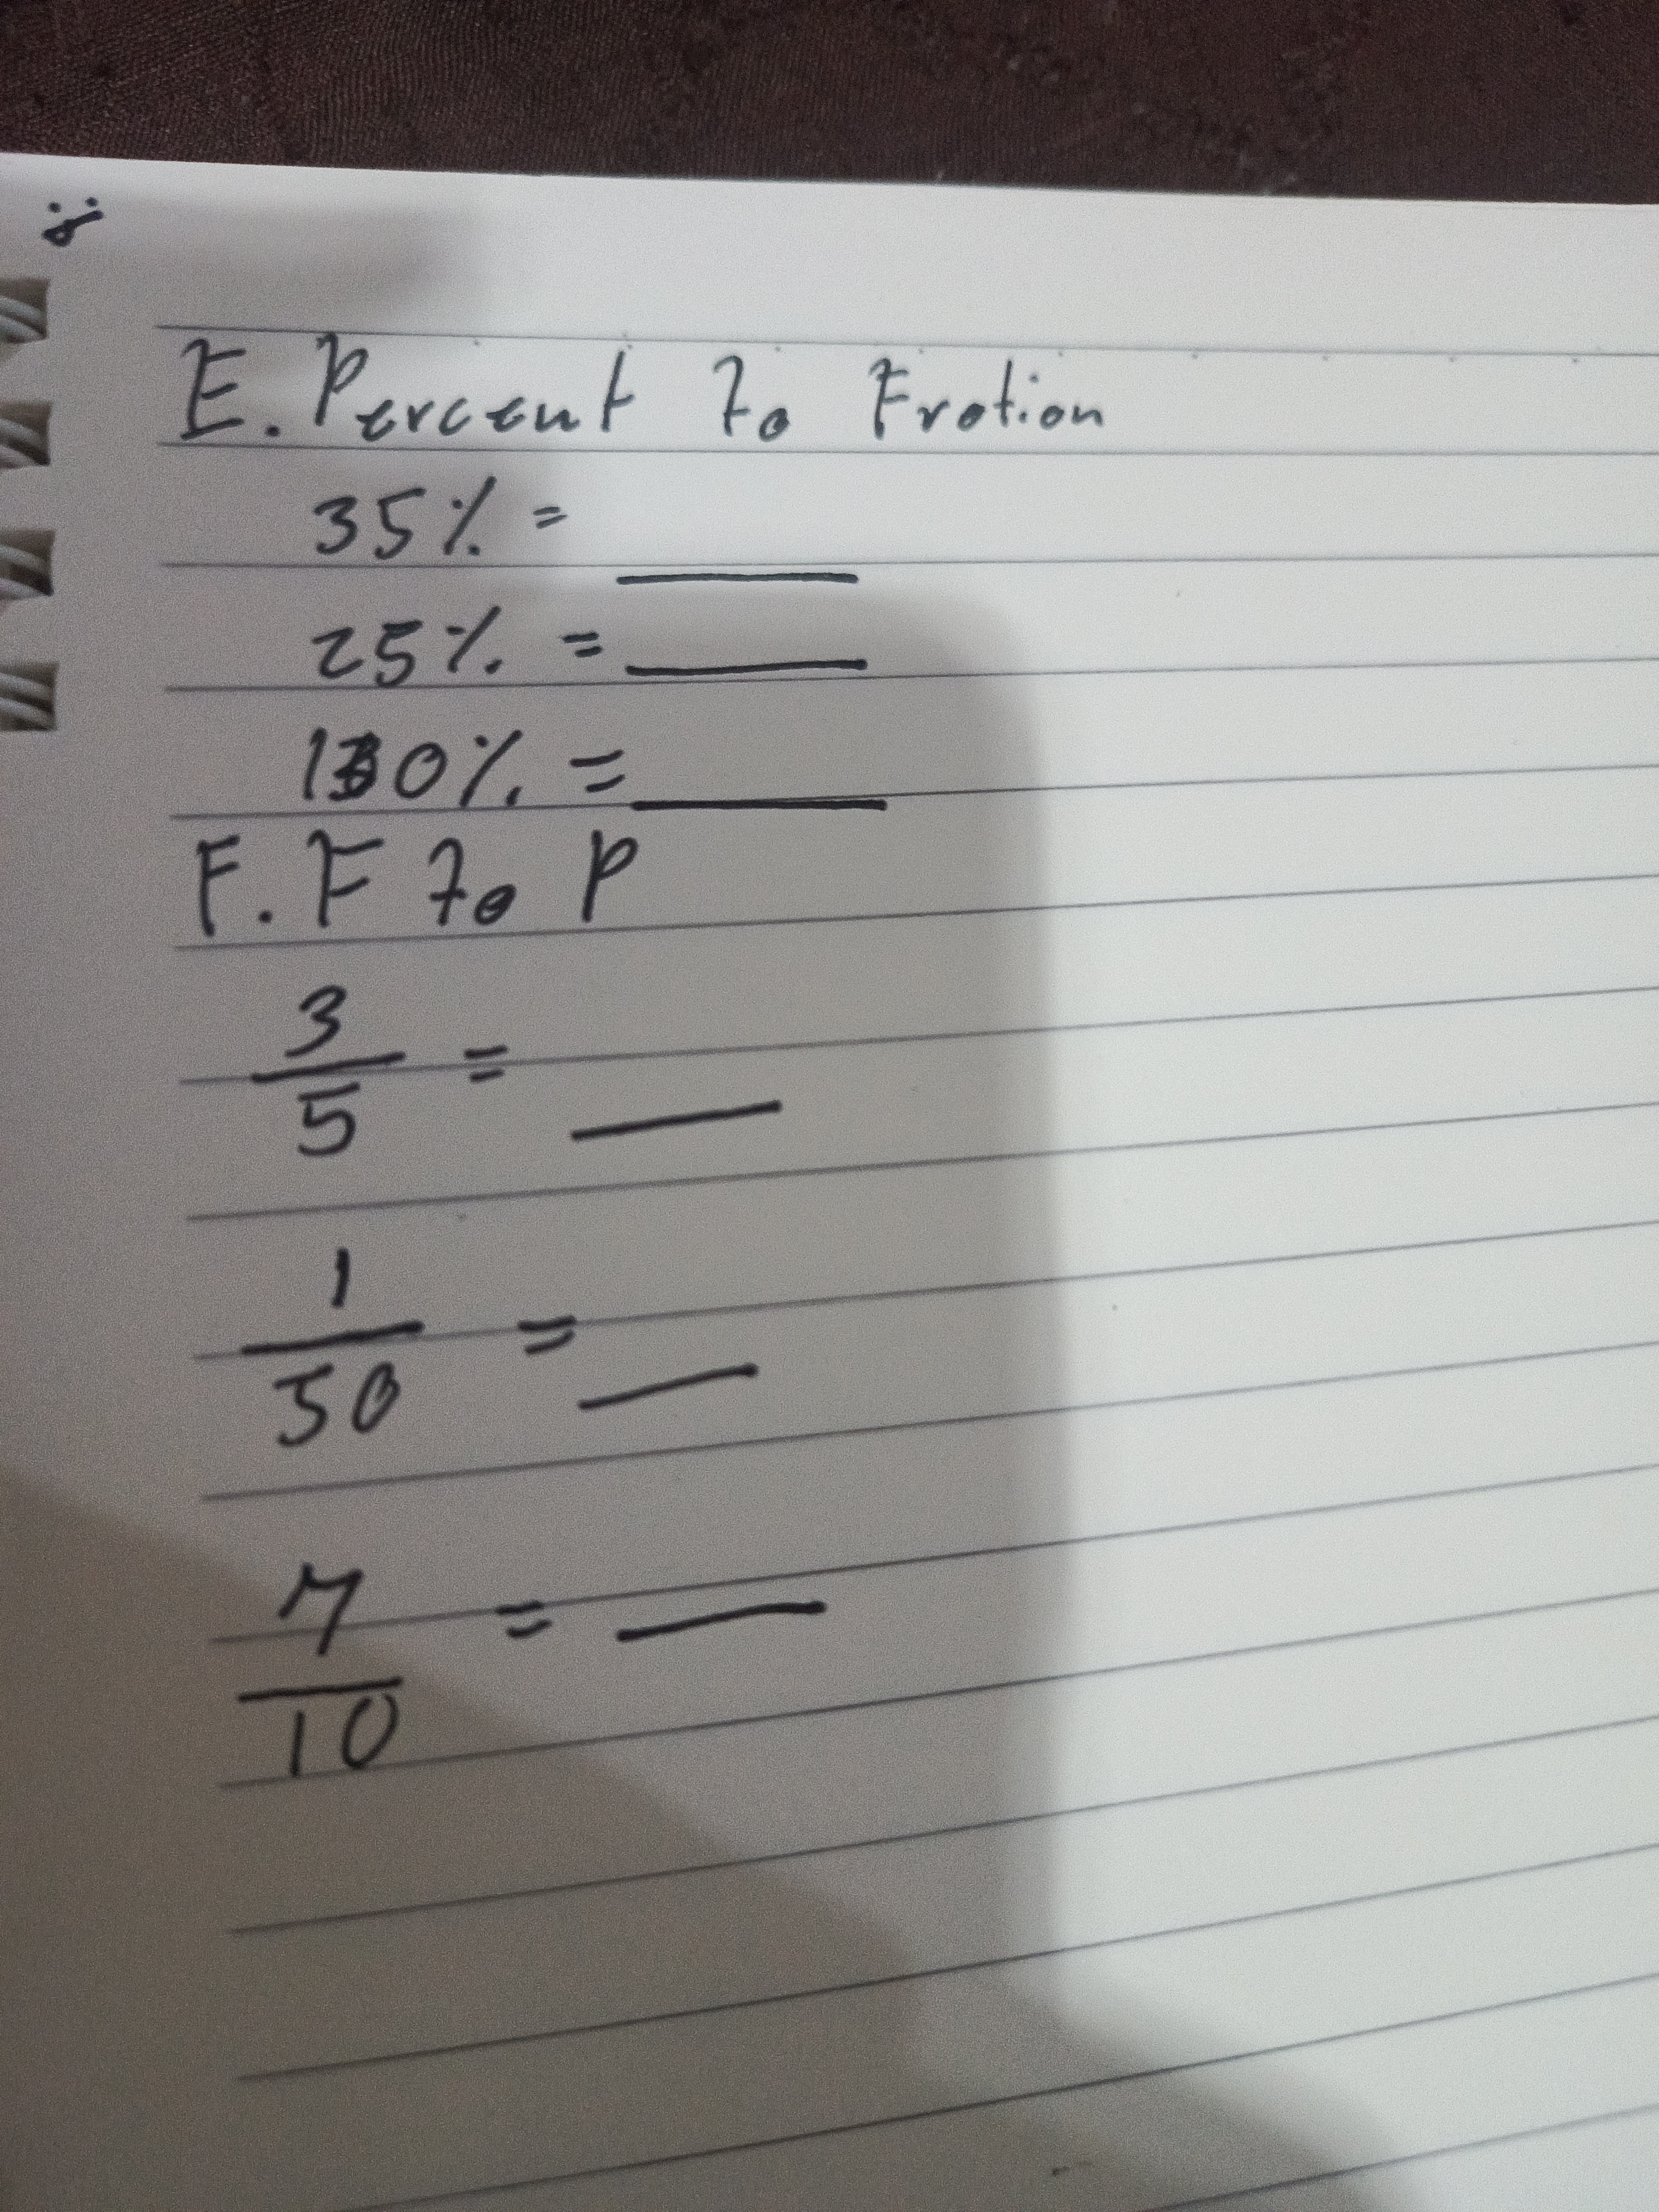 E. Percent To Frotion
35% =
25% =
130% =
F. F To P
3/5 =
1/50 =
7/10 =